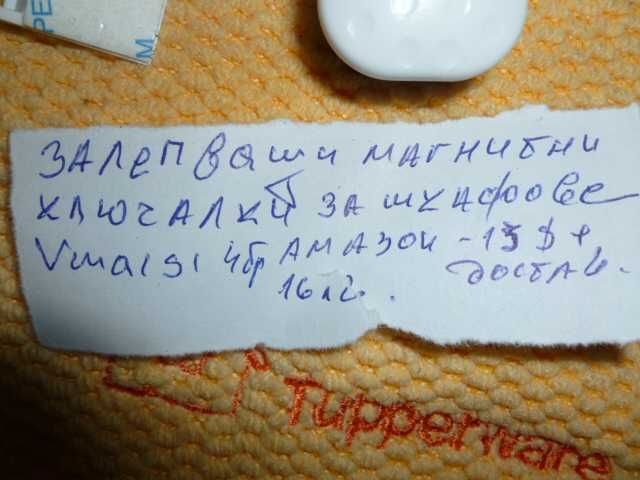 РЕ
М
ЗАЛЕПВАЩИ МАГНИТНИ
КЛЮЧАЛКИ ЗА ШКАФОВЕ
Vmaisi 4бр АМАЗОН - 15 $ +
ДОСТАВ.
16 лв.
Tupperware